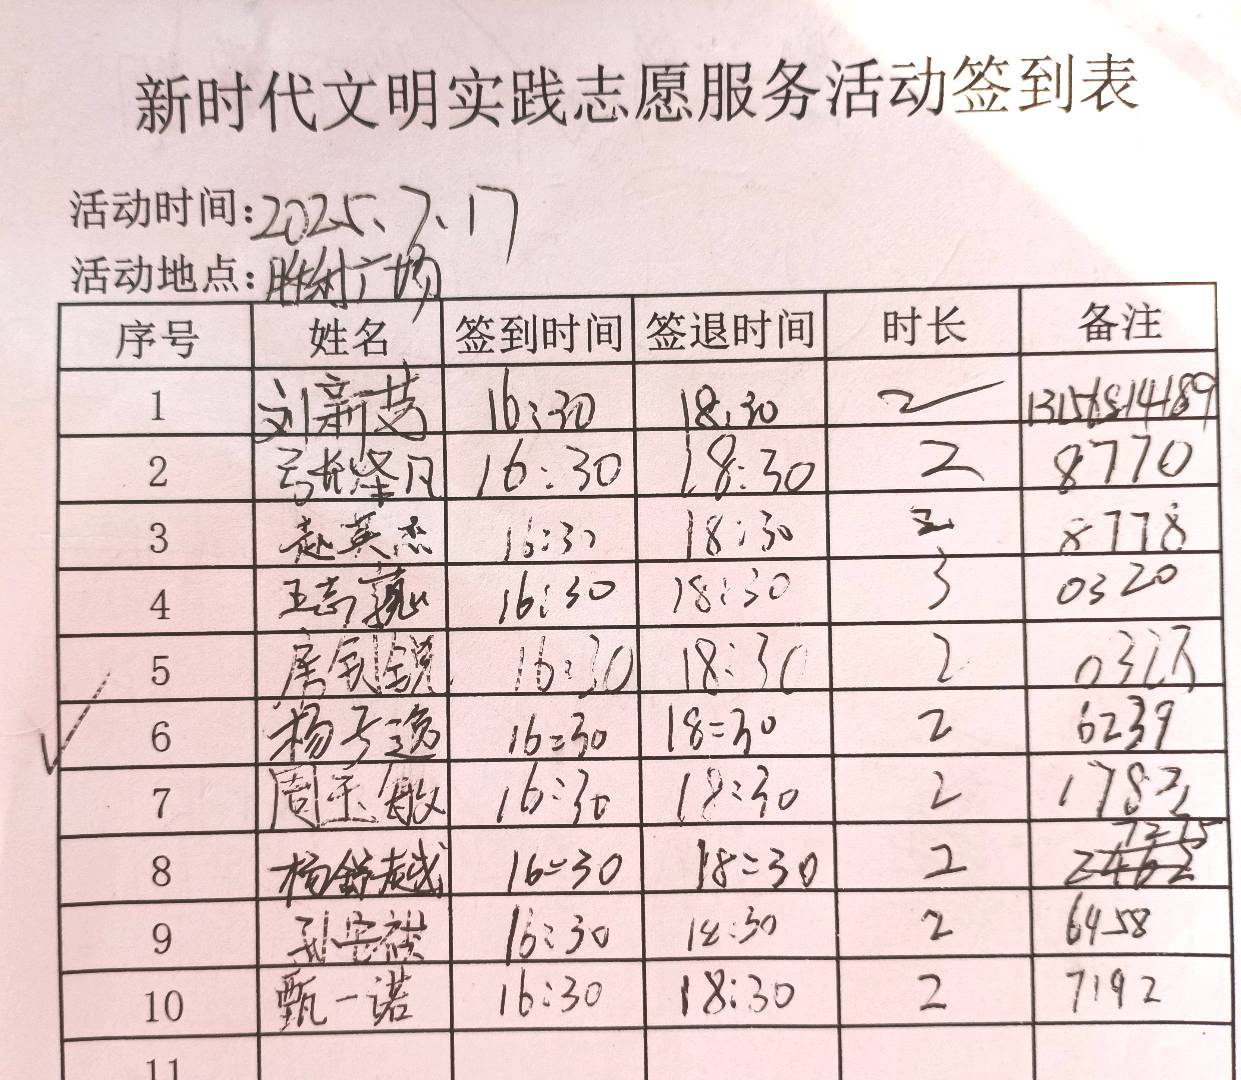 新时代文明实践志愿服务活动签到表
活动时间:2025、7、17
活动地点:胜利广场
序号 姓名 签到时间 签退时间 时长 备注
1 刘新茂 16:30 18:30 2 13156814189
2 16:30 18:30 2 8770
3 赵英杰 16:30 18:30 2 8778
4 王志 16:30 18:30 3 0320
5 唐钊锐 16:30 18:30 2
6 杨子逸 16:30 18:30 2 6239
7 周玉敏 16:30 18:30 2 1782
8 杨舒越 16:30 18:30 2 7215
9 16:30 18:30 2 6458
10 甄一诺 16:30 18:30 2 7192
11